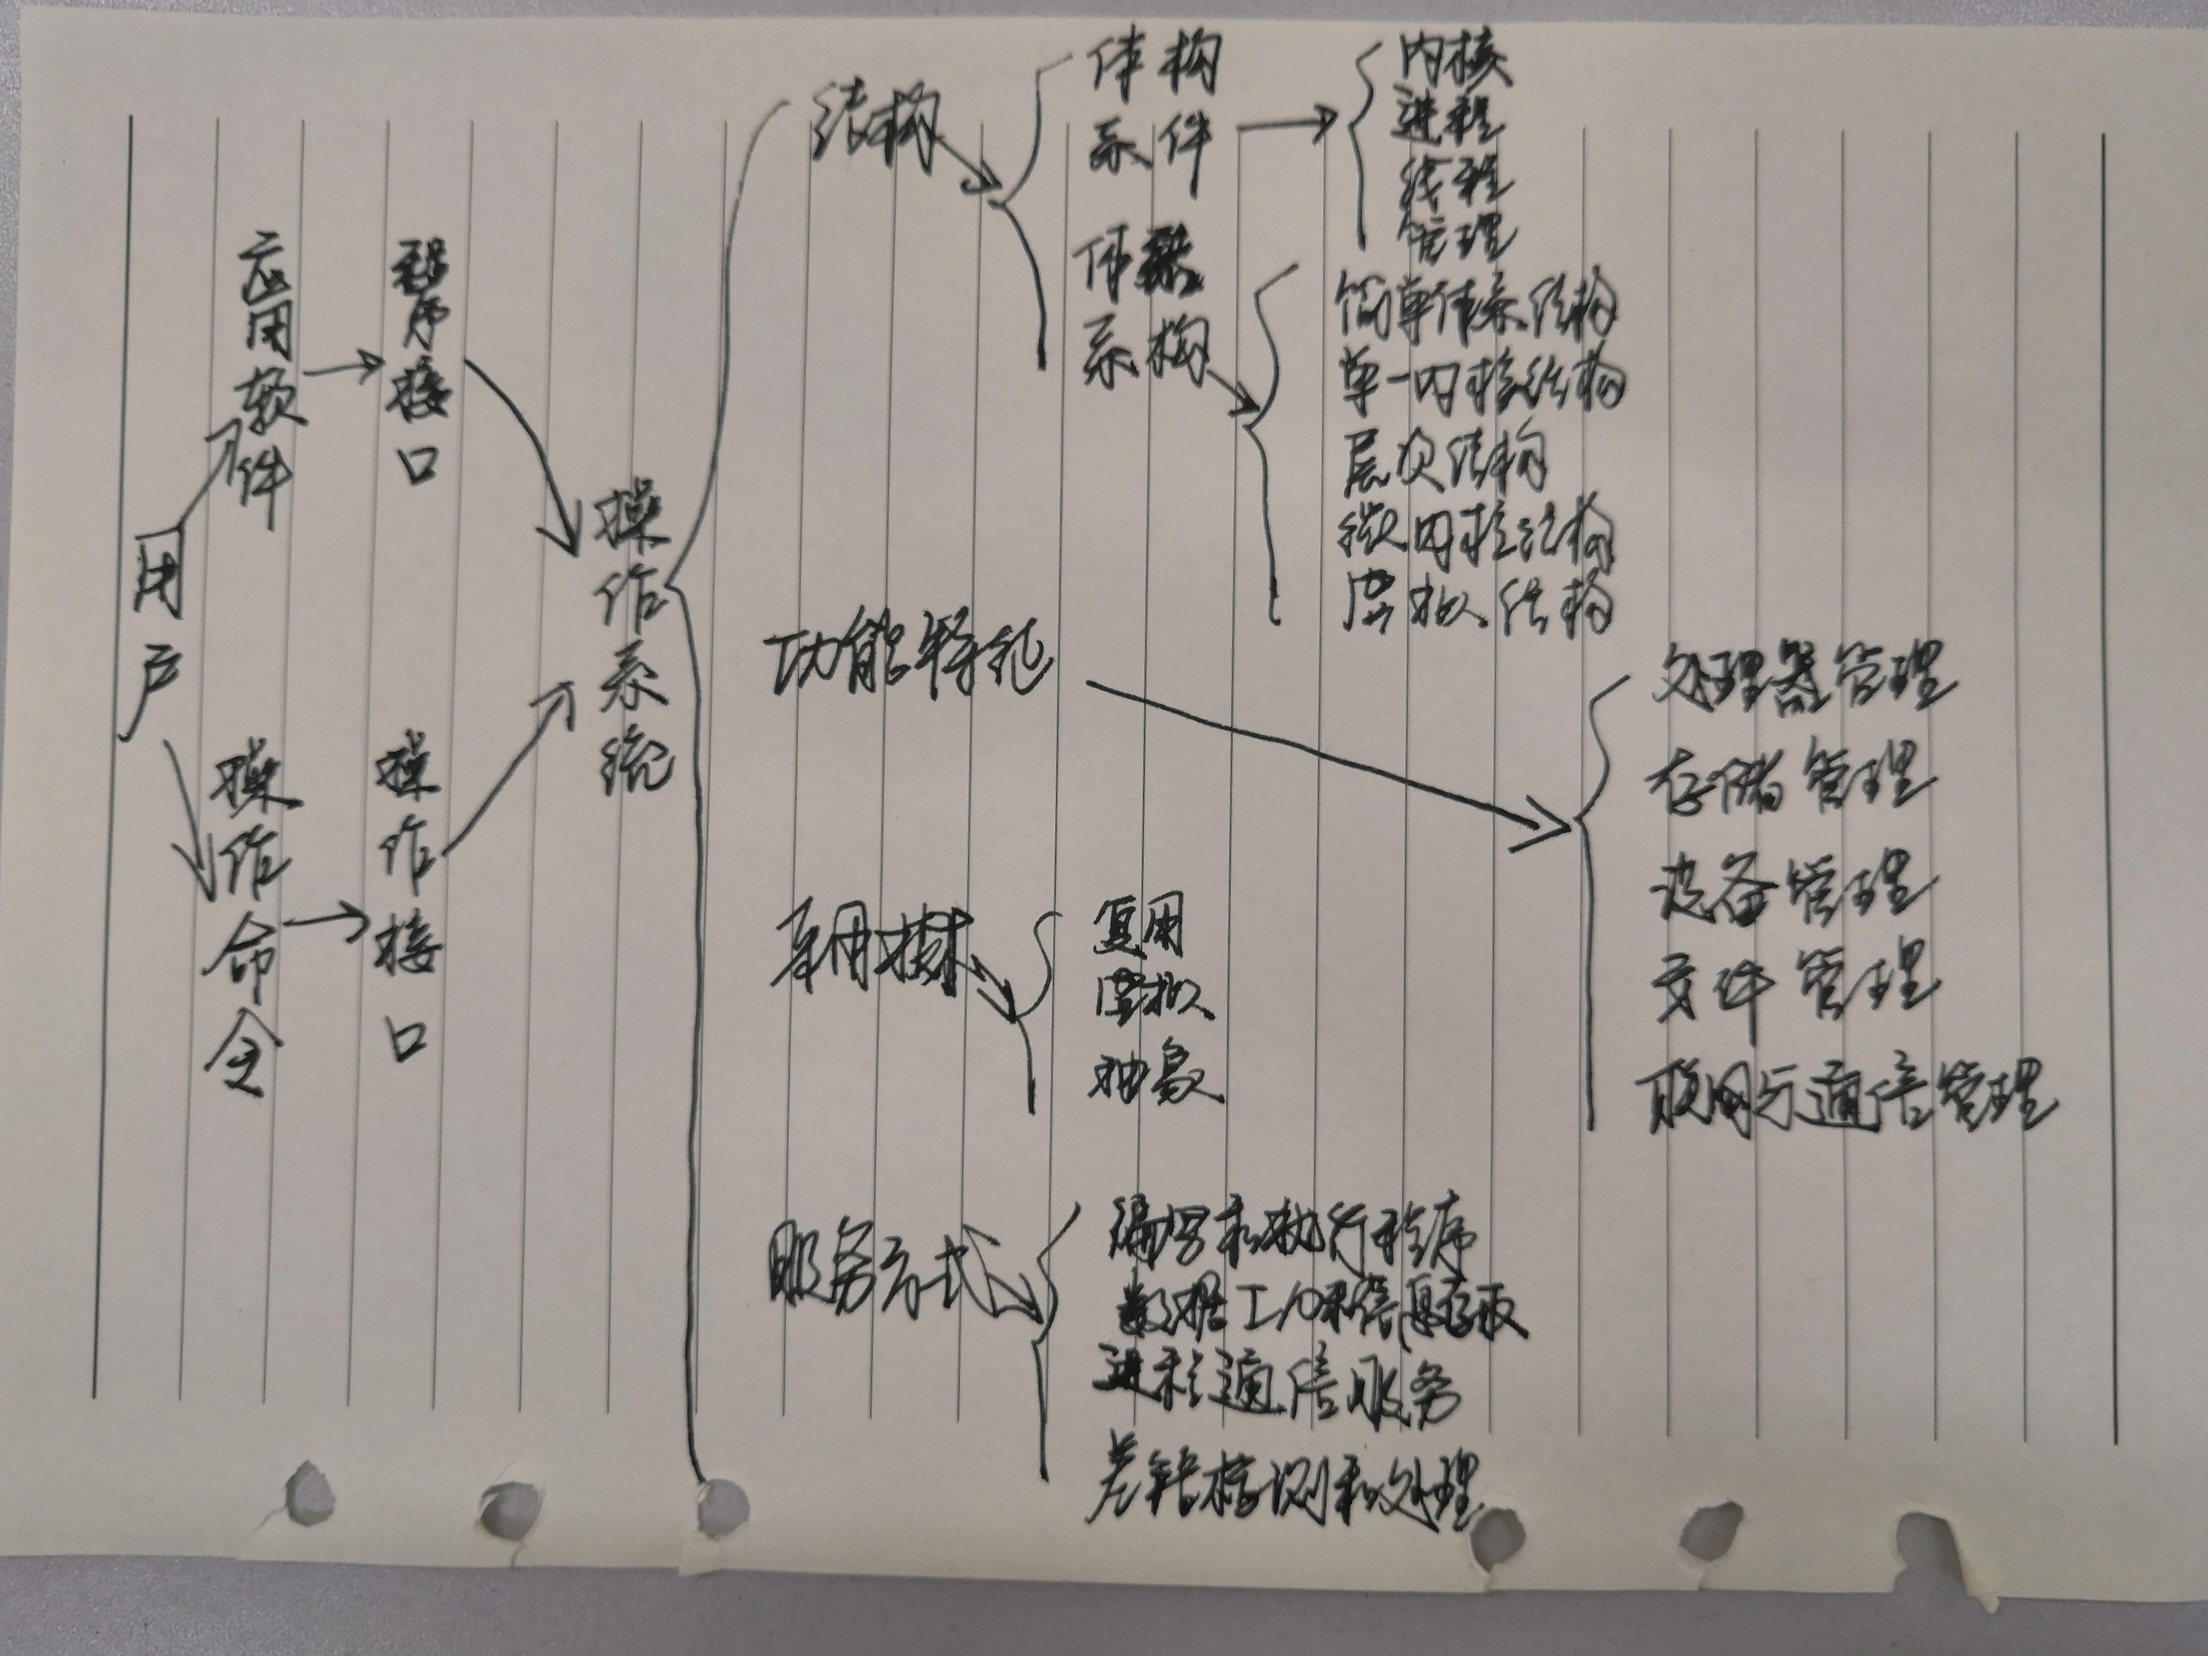 用户
应用软件
程序接口
操作命令
操作接口
操作系统
结构
体系构件
内核
进程
线程
管理
体系结构
简单体系结构
单一内核结构
层次结构
微内核结构
虚拟结构
功能特征
处理器管理
存储管理
设备管理
文件管理
联网与通信管理
采用技术
复用
虚拟
抽象
服务方式
编写和执行程序
数据I/O和信息存取
进程通信服务
差错检测和处理